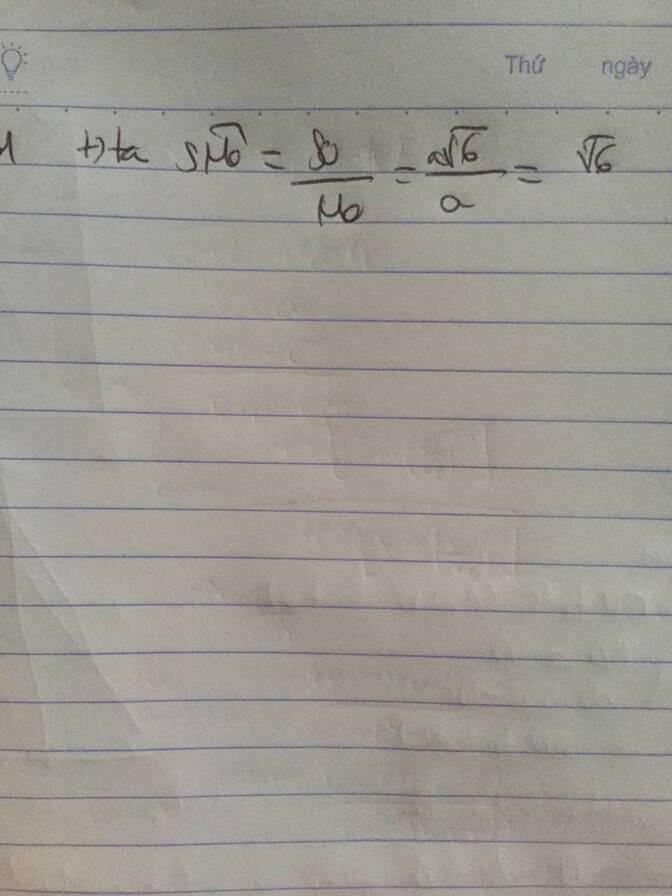 Thứ ngày
+) ta SMO = SO / MO = a√6 / a = √6